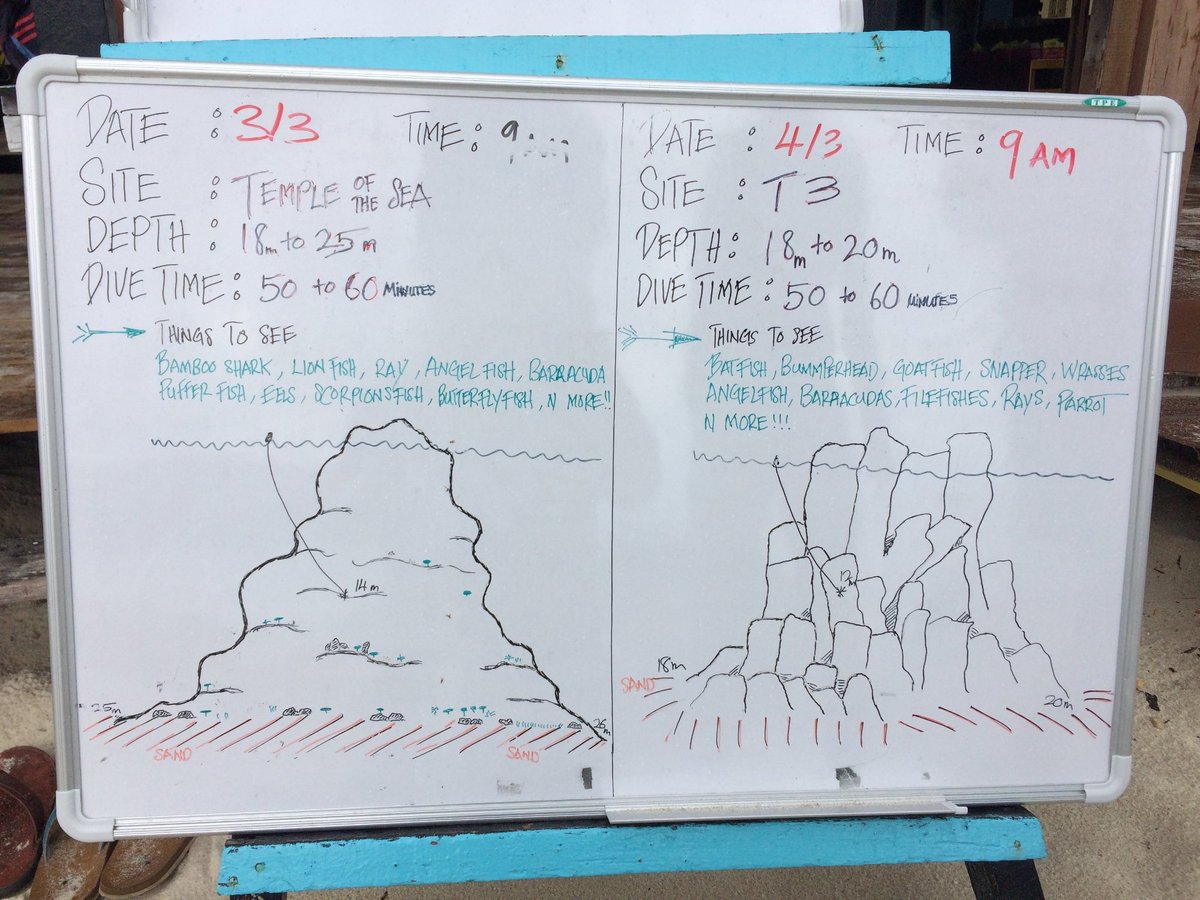 TPE
DATE : 3/3 TIME : 9 AM
SITE : TEMPLE OF THE SEA
DEPTH : 18m to 25m
DIVE TIME : 50 to 60 MINUTES
THINGS TO SEE
BAMBOO SHARK, LION FISH, RAY, ANGEL FISH, BARRACUDA
PUFFER FISH, EELS, SCORPIONSFISH, BUTTERFLYFISH, N MORE!!
14m
25m
26m
SAND
SAND
DATE : 4/3 TIME : 9 AM
SITE : T3
DEPTH : 18m to 20m
DIVE TIME : 50 to 60 MINUTES
THINGS TO SEE
BATFISH, BUMMPERHEAD, GOATFISH, SNAPPER, WRASSES
ANGELFISH, BARRACUDAS, FILEFISHES, RAYS, PARROT
N MORE!!!
12m
18m
SAND
20m